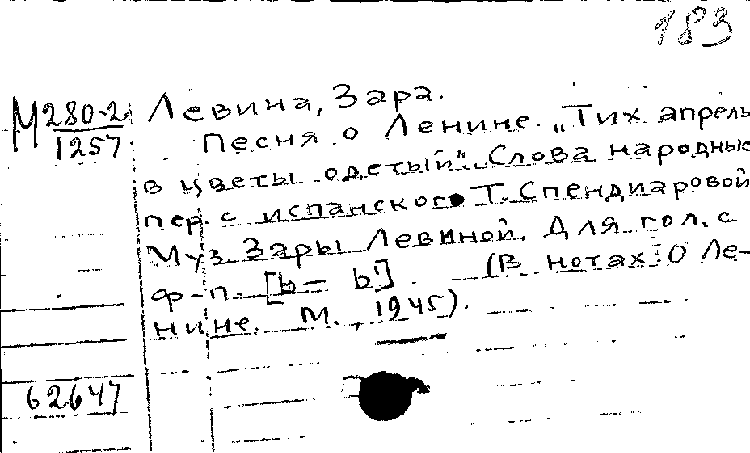 183
М 280-2 Левина, Зара.
1257 Песня о Ленине. „Тих апрель
в цветы одетый". Слова народные
пер. с испанского Т. Спендиаровой
Муз. Зары Левиной. Для гол. с
ф-п. [b - b']. (В нотах: О Ле-
нине. М., 1945).
62647